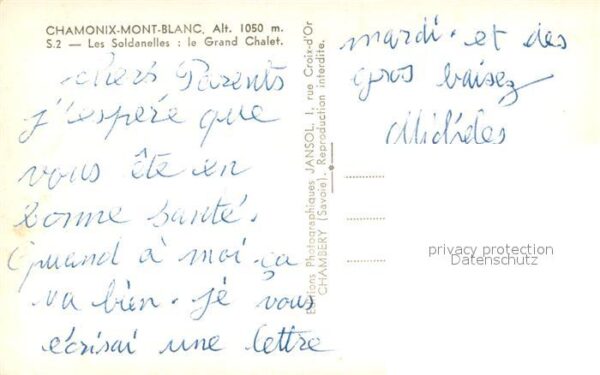 CHAMONIX-MONT-BLANC, Alt. 1050 m.
S.2 — Les Soldanelles : le Grand Chalet.
chers Parents
j'espére que
vous ête en
bonne santé.
Quand à moi ça
va bien. je vous
écrisai une lettre
mardi. et des
gros baisez
Editions Photographiques JANSOL, 1, rue Croix-d'Or
CHAMBÉRY (Savoie). Reproduction interdite.
privacy protection
Datenschutz